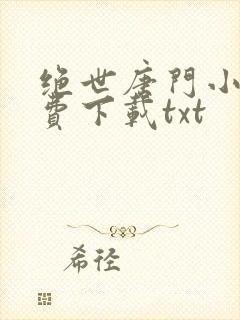 绝世唐門小
費下載txt
希径